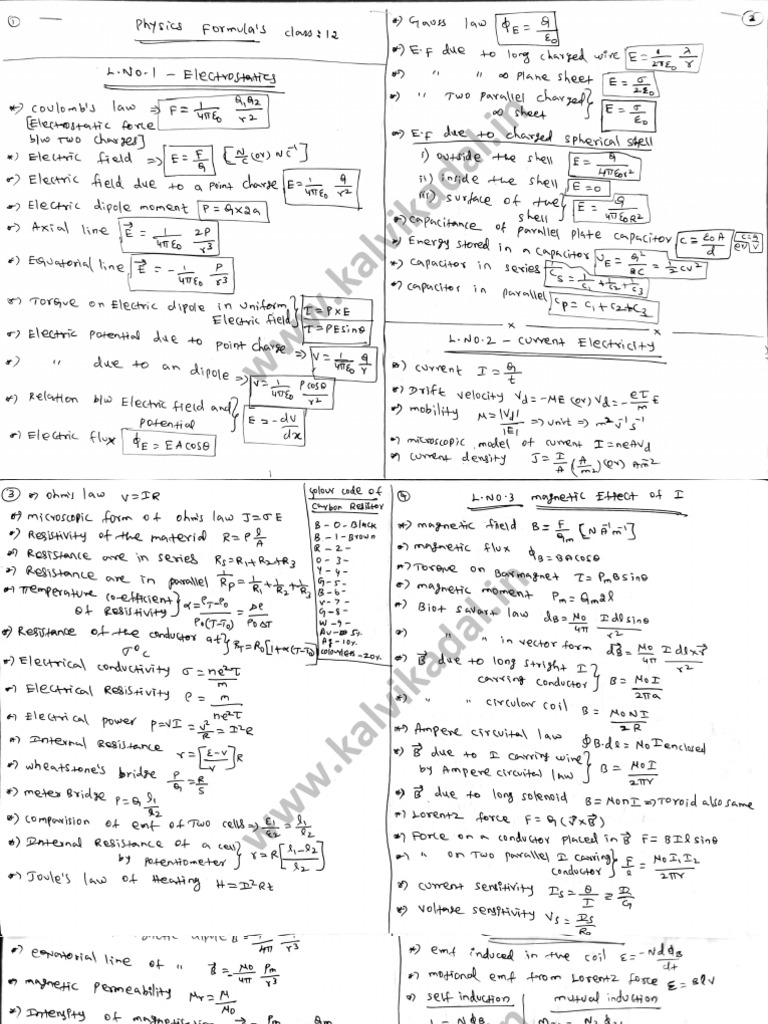 1
Physics Formula's class:12
L.NO.1 - Electrostatics
*) coulomb's law => F = 1/4πε0 Q1Q2/r²
[Electrostatic force
b/w two charges]
*) Electric field => E = F/Q [N/C (or) NC⁻¹]
*) Electric field due to a point charge E = 1/4πε0 Q/r²
*) Electric dipole moment P = Q×2a
*) Axial line E⃗ = 1/4πε0 2P/r³
*) Equatorial line E⃗ = -1/4πε0 P/r³
*) Torque on Electric dipole in uniform Electric field } τ = P×E
τ = PE sinθ
*) Electric potential due to point charge => V = 1/4πε0 Q/r
*) " due to an dipole => V = 1/4πε0 P cosθ/r²
*) Relation b/w Electric field and potential } E = -dV/dx
*) Electric flux ΦE = EA cosθ
2
*) Gauss law ΦE = Q/ε0
*) E.F due to long charged wire E = 1/2πε0 λ/r
*) " " ∞ plane sheet E = σ/2ε0
*) " Two parallel charged ∞ sheet } E = σ/ε0
*) E.F due to charged spherical shell
i) outside the shell E = Q/4πε0r²
ii) inside the shell E = 0
iii) surface of the shell E = Q/4πε0R²
*) capacitance of parallel plate capacitor C = ε0A/d
*) Energy stored in a capacitor UE = Q²/2C = 1/2 CV²
*) capacitor in series CS = 1/C1 + 1/C2 + 1/C3
*) capacitor in parallel CP = C1+C2+C3
L.NO.2 - current Electricity
*) current I = Q/t
*) Drift velocity Vd = -ME (or) Vd = -eτ/m E
*) mobility M = |Vd|/|E| => unit => m²V⁻¹s⁻¹
*) microscopic model of current I = neAVd
*) current density J = I/A (A/m²) (or) Am⁻²
3
*) ohm's law V = IR
*) microscopic form of ohm's law J = σE
*) Resistivity of the material R = ρ l/A
*) Resistance are in series RS = R1+R2+R3
*) Resistance are in parallel 1/RP = 1/R1 + 1/R2 + 1/R3
*) Temperature co-efficient of Resistivity } α = ρT-ρ0/ρ0(T-T0) = Δρ/ρ0ΔT
*) Resistance of the conductor at σ°C } RT = R0[1+α(T-T0)]
*) Electrical conductivity σ = ne²τ/m
*) Electrical Resistivity ρ = m/ne²τ
*) Electrical power P = VI = V²/R = I²R
*) Internal Resistance r = [ε-V/V]R
*) wheatstone's bridge P/Q = R/S
*) meter Bridge P = Q l1/l2
*) comparision of emf of Two cells => ε1/ε2 = l1/l2
*) Internal Resistance of a cell by potentiometer } r = R[l1-l2/l2]
*) Joule's law of Heating H = I²Rt
colour code of
Carbon Resistor
B - 0 - Black
B - 1 - Brown
R - 2 -
O - 3 -
Y - 4 -
G - 5 -
B - 6 -
V - 7 -
G - 8 -
W - 9 -
Au - 5%
Ag - 10%
colourless - 20%
4
L.NO.3 magnetic Effect of I
*) magnetic field B = F/qm [NA⁻¹m⁻¹]
*) magnetic flux ΦB = BA cosθ
*) Torque on Barmagnet τ = PmB sinθ
*) magnetic moment Pm = qm2l
*) Biot savart law dB = M0/4π Idl sinθ/r²
*) " " in vector form dB⃗ = M0/4π Idl×r̂/r²
*) B⃗ due to long stright I carring conductor } B = M0I/2πa
*) " " circular coil B = M0NI/2R
*) Ampere circuital law ∮B.dl = M0Ienclosed
*) B⃗ due to I carring wire by Ampere circuital law } B = M0I/2πr
*) B⃗ due to long solenoid B = M0nI => Toroid also same
*) Lorentz force F = Q(V⃗×B⃗)
*) Force on a conductor placed in B⃗ F = BIl sinθ
*) " on Two parallel I carring conductor } F/l = M0I1I2/2πr
*) current sensitivity IS = θ/I
*) voltage sensitivity VS = IS/RG
*) equatorial line of " B⃗ = -M0/4π Pm/r³
*) magnetic permeability Mr = M/M0
*) Intensity of
*) emf induced in the coil ε = -NdΦB/dt
*) motional emf from Lorentz force ε = Blv
*) self induction | mutual induction
www.kalvikadal.in
www.kalvikadal.in